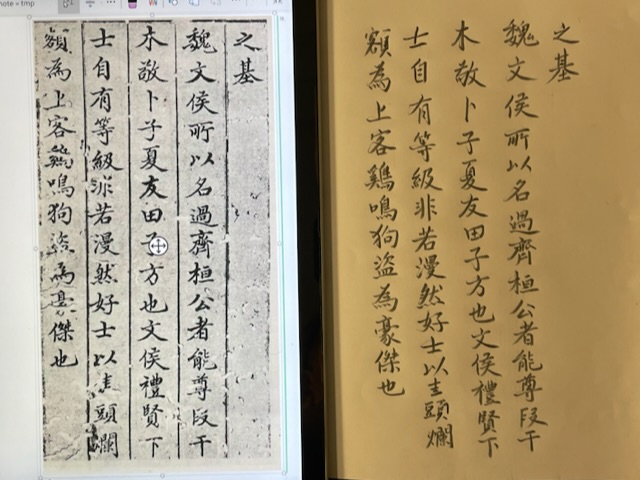 note × tmp
之基
魏文侯所以名過齊桓公者能尊段干
木敬卜子夏友田子方也文侯禮賢下
士自有等級非若漫然好士以圭頭爛
額為上客鷄鳴狗盜為豪傑也
之基
魏文侯所以名過齊桓公者能尊段干
木敬卜子夏友田子方也文侯禮賢下
士自有等級非若漫然好士以圭頭爛
額為上客鷄鳴狗盜為豪傑也